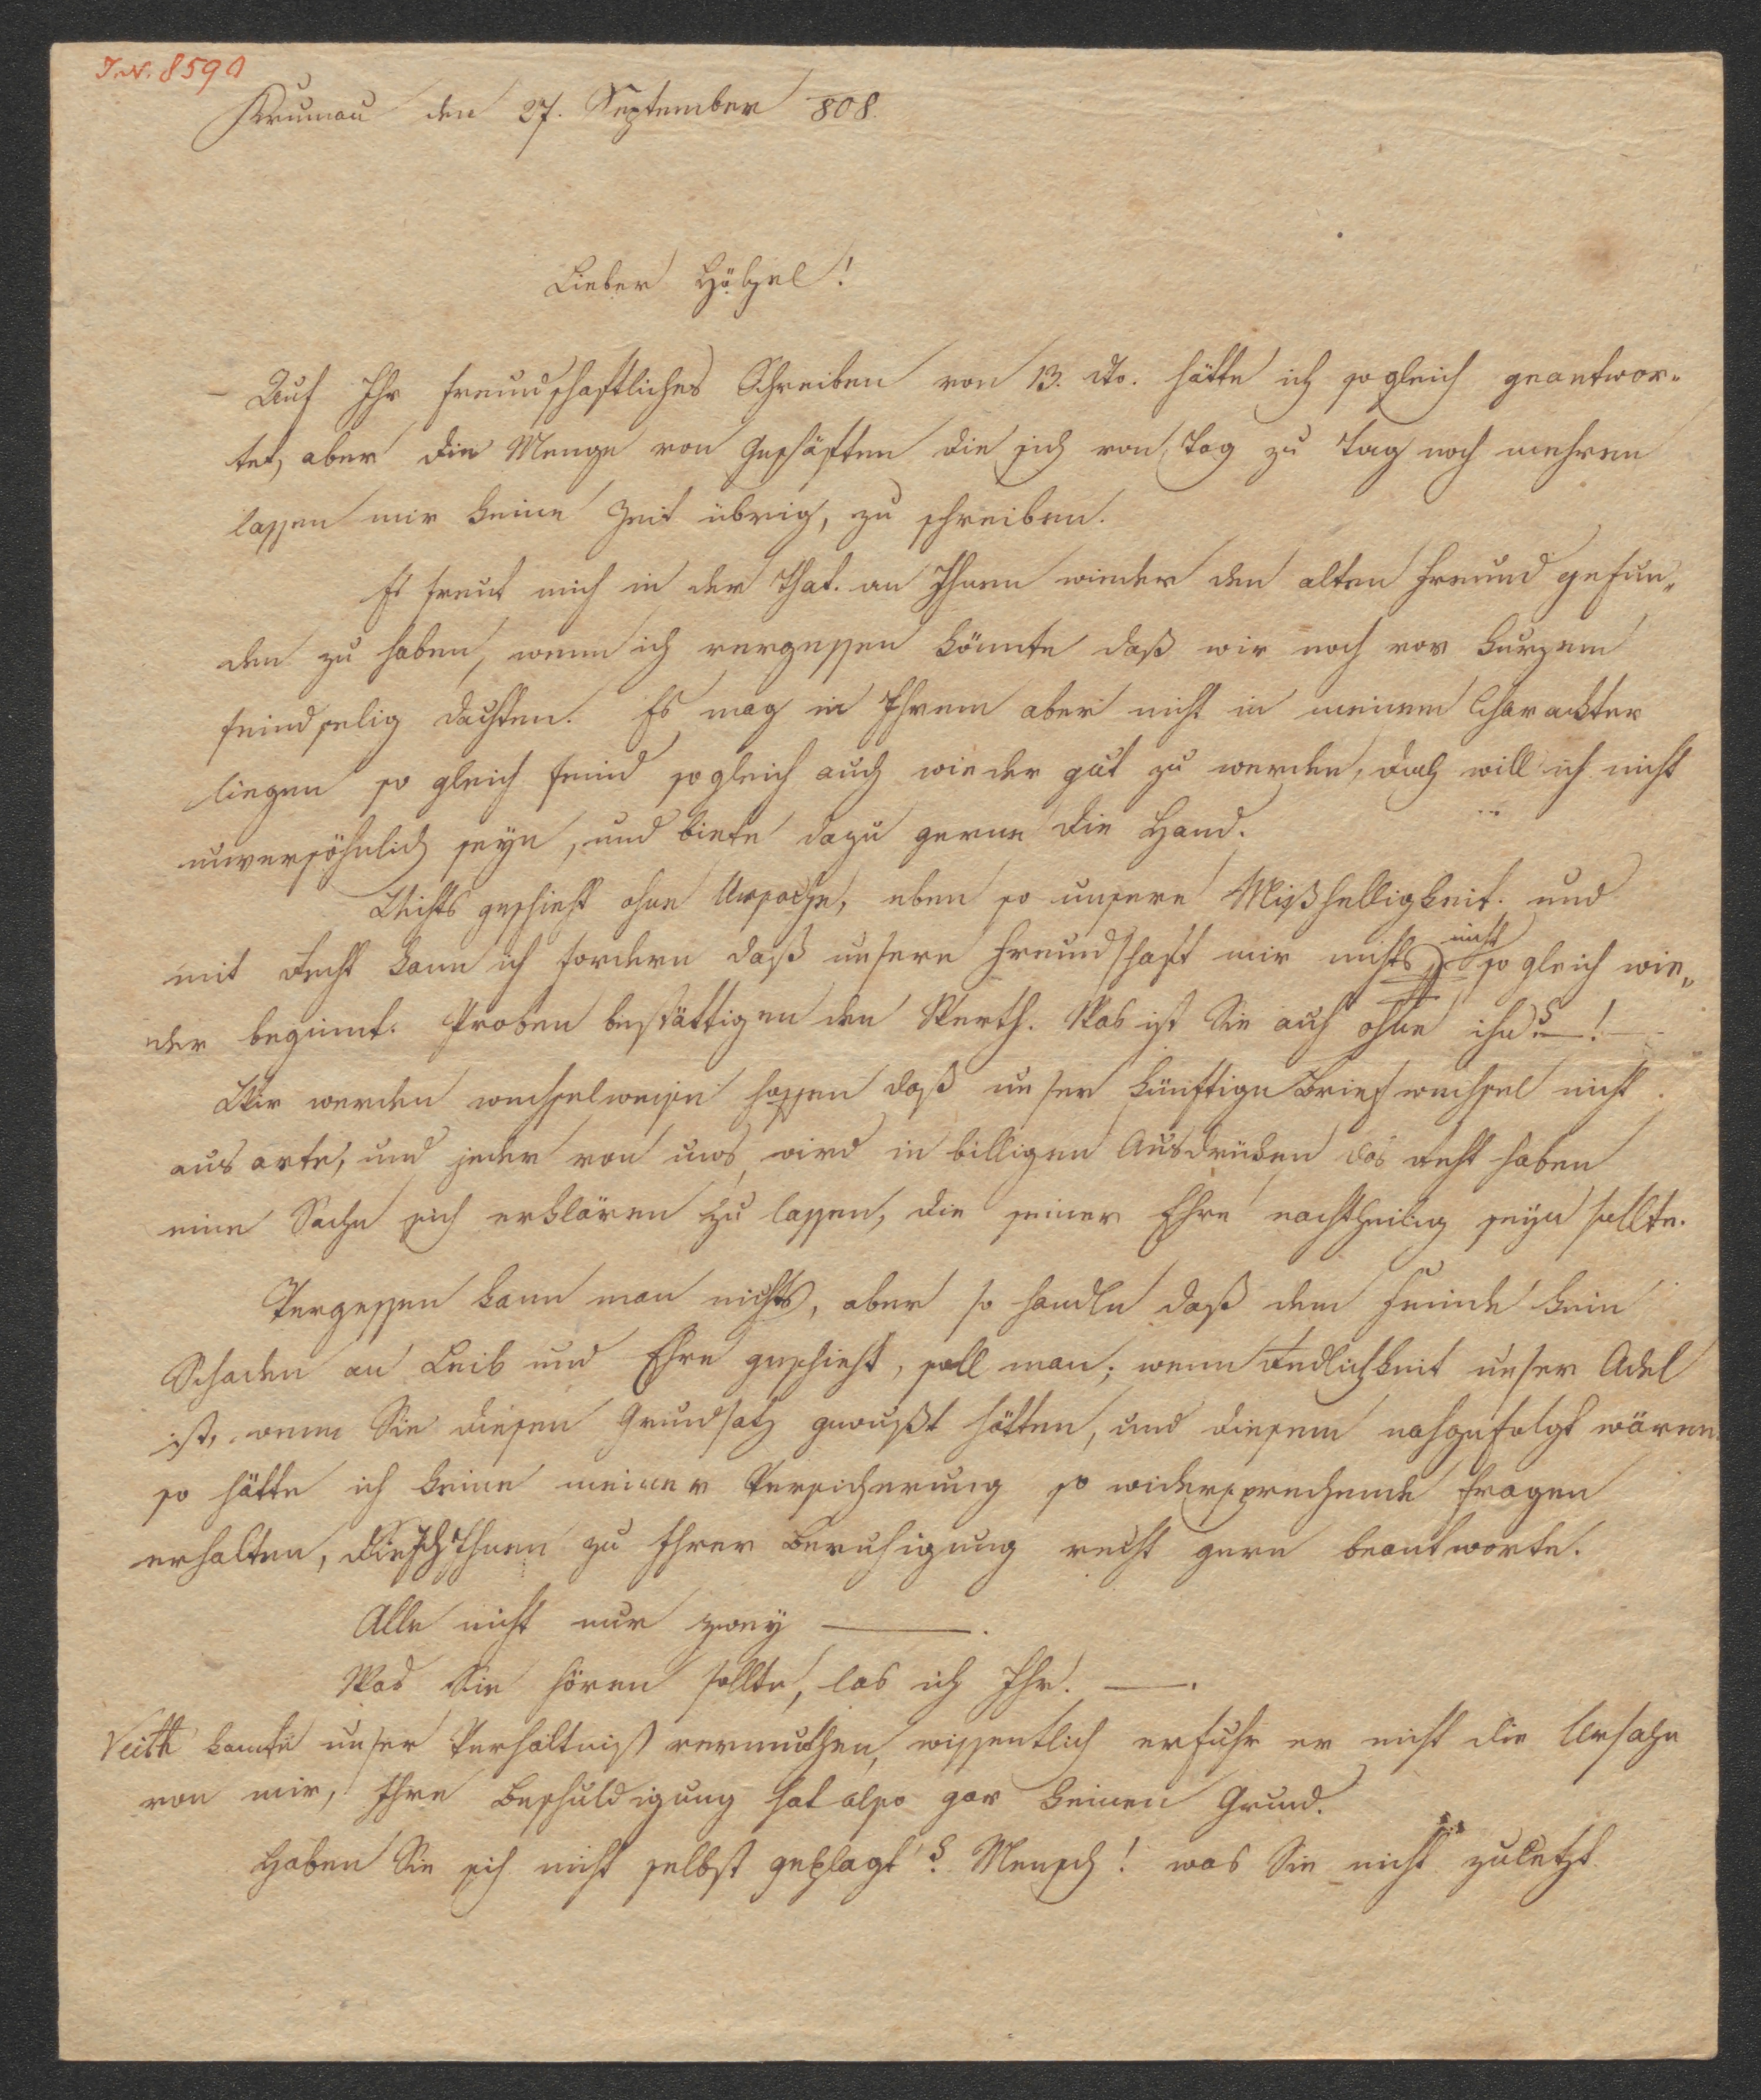 I.N. 8590
Krumau den 27. September 808.
Lieber Hölzel!
Auf Ihr freundschaftliches Schreiben von 13. dto. hätte ich sogleich geantwor-
tet, aber die Menge von Geschäften die sich von Tag zu Tag noch mehren
lassen mir keine Zeit übrig, zu schreiben.
Es freut mich in der That. an Ihnen wieder den alten Freund gefun„
den zu haben, wenn ich vergessen könnte daß wir noch vor kurzem
feindselig dachten. Es mag in Ihrem aber nicht in meinem Charackter
liegen so gleich feind sogleich auch wieder gut zu werden, doch will ich nicht
unversöhnlich seyn, und biete dazu gerne die Hand.
Nichts geschieht ohne Ursache, eben so unsere Mißhelligkeit. und
mit Recht kann ich fordern daß unsere Freundschaft mir nichts nicht so gleich wie„
der beginnt. Proben bestättigen den Werth. Was ist Sie auch ohne ihn? —!—
Wir werden wechselweise hoffen daß unser künftige Briefwechsel nicht
ausarte, und jeder von uns wird in billigen Ausdrücken das recht haben
eine Sache sich erklären zu lassen, die seiner Ehre nachtheilig seyn sollte.
Vergessen kann man nichts, aber so handle daß dem Feinde kein
Schaden an Leib und Ehre geschieht, soll man; wenn Redlichkeit unser Adel
ist, wenn Sie diesen Grundsatz gewußt hätten, und diesem nachgefolgt wären
so hätte ich keine meiner Versicherung so widersprechende Fragen
erhalten, die ich Ihnen zu Ihrer Beruhigung recht gern beantworte.
Alle nicht nur zwey ———.
Was Sie hören sollte, las ich Ihr. —.
Veith konnte unser Verhältniß vermuthen, wissentlich erfuhr er nicht die Ursache
von mir, Ihre Beschuldigung hat also gar keinen Grund.
Haben Sie sich nicht selbst geklagt? Mensch! was Sie nicht zuletzt